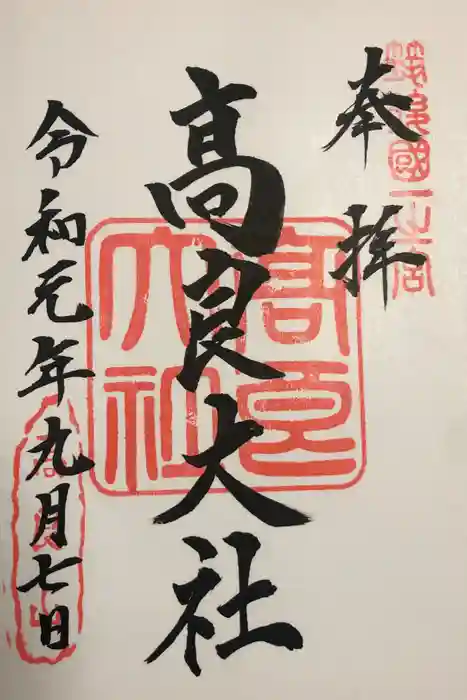 筑後國一之宮
奉拝
高良大社
高良大社
令和元年九月七日